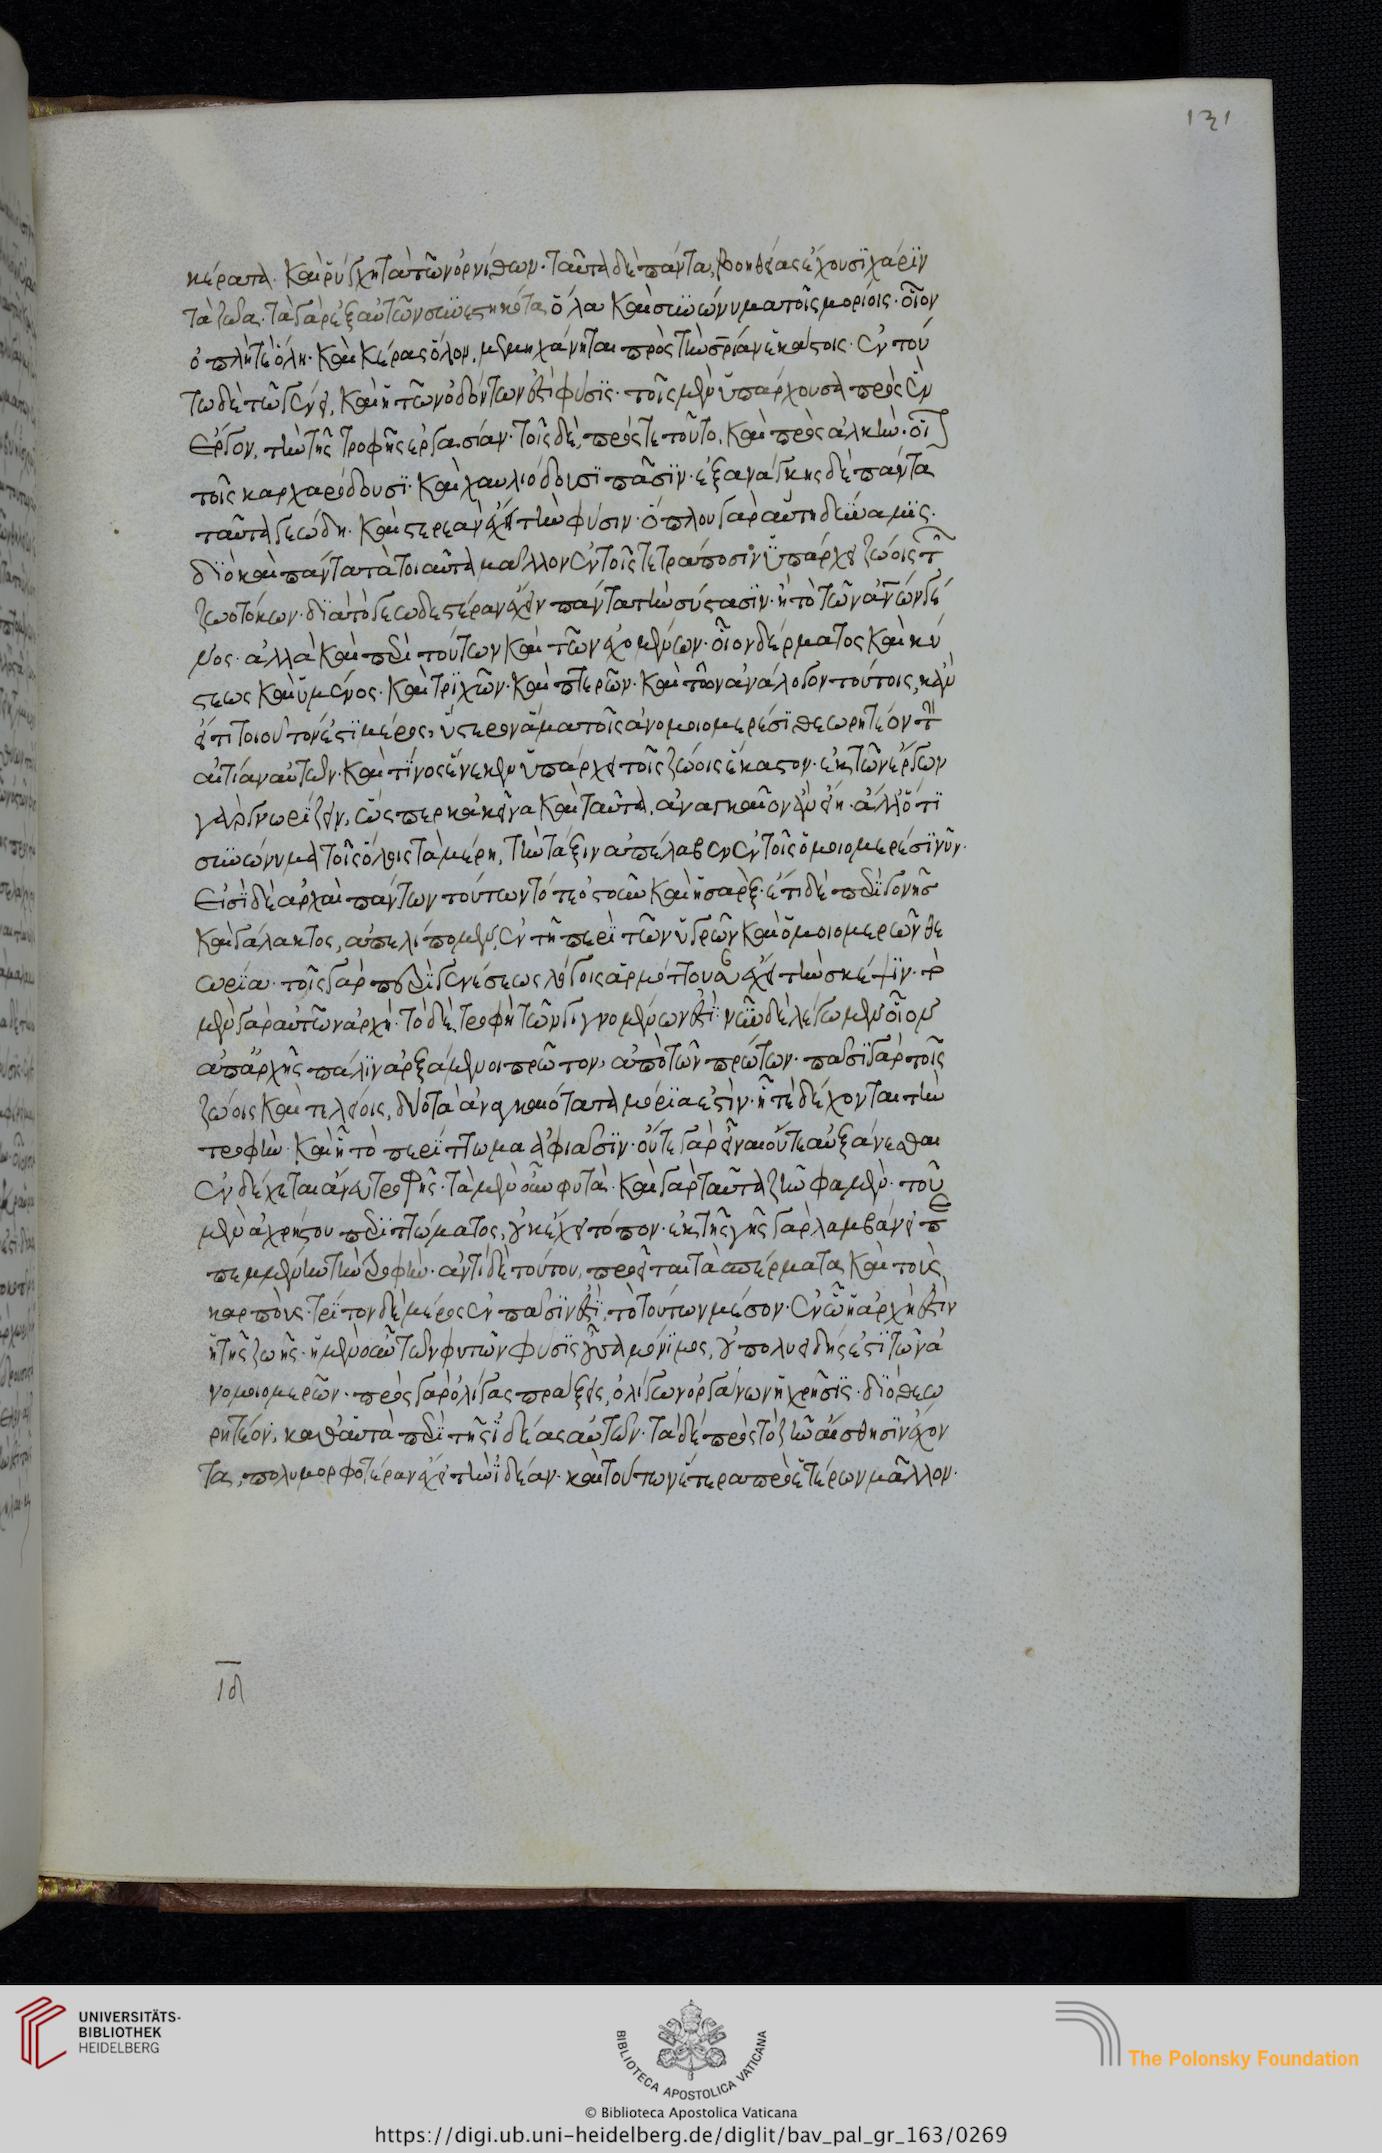 131
κέρατα. καὶ ῥύγχη τὰ τῶν ὀρνίθων. ταῦτα δὲ πάντα, βοηθείας ἔχουσϊ χάρϊν
τὰ ζῶα. τὰ γὰρ ἐξ αὐτῶν συνεστηκότα ὅλα καὶ συνώνυμα τοῖς μορίοις. οἷον
ὁπλή τε ὅλη. καὶ κέρας ὅλον, μεμηχάνηται πρὸς τὴν σρίαν ἑκάστοις. ἐν τού
τω δὲ τῶ γένει, καὶ ἡ τῶν ὀδόντων ἐστὶ φύσϊς. τοῖς μὲν ὑπάρχουσα πρὸς ἓν
ἔργον, τὴν τῆς τροφῆς ἐργασίαν. τοῖς δὲ, πρός τε τοῦτο, καὶ πρὸς ἀλκήν. οἷον
τοῖς καρχαρόδουσϊ. καὶ χαυλιόδουσϊ πᾶσϊν. ἐξ ἀνάγκης δὲ πάντα
ταῦτα γεώδη. καὶ στερεὰν ἔχει τὴν φύσιν. ὅπλου γὰρ αὕτη δύναμϊς.
δϊὸ καὶ πάντα τὰ τοιαῦτα μᾶλλον ἐν τοῖς τετράποσιν ὑπάρχει ζώοις τῶν
ζωοτόκων. δϊὰ τὸ γεωδεστέραν ἔχειν πάντα τὴν σύστασϊν. ἢ τὸ τῶν ἀνων γέ
νος. ἀλλὰ καὶ περὶ τούτων καὶ τῶν ἐχομένων. οἷον δέρματος καὶ κύ
στεως καὶ ὑμένος. καὶ τρϊχῶν. καὶ πτερῶν. καὶ τῶν ἀνάλογον τούτοις, κἂν
εἴ τι τοιουτον ἐστϊ μέρος, ὕστερον ἅμα τοῖς ἀνομοιομερέσϊ θεωρητέον τὴν
αἰτίαν αὐτῶν. καὶ τίνος ἕνεκεν ὑπάρχει τοῖς ζώοις ἕκαστον. ἐκ τῶν ἔργων
γὰρ γνωρϊζειν, ὥσπερ κἀκεῖνα καὶ ταῦτα, ἀναγκαῖον ἂν εἴη. ἀλλ' ὅτϊ
συνώνυμα τοῖς ὅλοις τὰ μέρη, τὴν τάξιν ἀπέλαβεν ἐν τοῖς ὁμοιομερέσϊ νῦν.
Εἰσϊ δὲ ἀρχαὶ πάντων τούτων τό τε ὀστοῦν καὶ ἡ σάρξ. ἔτι δὲ περϊ γονῆς
καὶ γάλακτος, ἀπελίπομεν, ἐν τῆ περϊ τῶν ὑγρῶν καὶ ὁμοιομερῶν θε
ωρία. τοῖς γὰρ περὶ γενέσεως λόγοις ἁρμόττουσαν ἔχει τὴν σκέψϊν. τὸ
μὲν γὰρ αὐτῶν ἀρχή. τὸ δὲ, τροφὴ τῶν γιγνομένων ἐστί. νῦν δὲ λέγωμεν οἷον
ἀπ' ἀρχῆς πάλϊν ἀρξάμενοι πρῶτον, ἀπὸ τῶν πρώτων. πασϊ γὰρ τοῖς
ζώοις καὶ τελείοις, δύο τὰ ἀναγκαιότατα μόρϊα ἐστϊν. ἧ τε δέχονται τὴν
τροφὴν. καὶ ἧ τὸ περίττωμα ἀφιᾶσϊν. οὔτε γὰρ εἶναι οὔτε αὐξάνεσθαι
ἐνδέχεται ἄνευ τροφῆς. τὰ μὲν οὖν φυτὰ. καὶ γὰρ ταῦτα ζῆν φαμὲν. τοῦ
μὲν ἀχρήστου περιττώματος, οὐκ ἔχει τόπον. ἐκ τῆς γῆς γὰρ λαμβάνει πε
πεμμένην τὴν τροφὴν. ἀντὶ δὲ τούτου, προεῖται τὰ σπέρματα καὶ τοὺς
καρποὺς. τρίτον δὲ μέρος ἐν πᾶσϊν ἐστϊ, τὸ τούτων μέσον. ἐν ὧ ἡ ἀρχὴ ἐστὶν
ἡ τῆς ζωῆς. ἡ μὲν οὖν τῶν φυτῶν φύσϊς οὖσα μόνϊμος, οὐ πολυειδής ἐστϊ τῶν ἀ
νομοιομερῶν. πρὸς γὰρ ὀλίγας πράξεις, ὀλίγων ὀργάνων ἡ χρῆσϊς. δϊὸ θεω
ρητέον, καθ' αὑτὰ περὶ τῆς ἰδέας αὐτῶν. τὰ δὲ πρὸς τὸ ζῆν αἴσθησϊν ἔχον
τα, πολυμορφοτέραν ἔχει τὴν ἰδέαν. καὶ τούτων ἕτερα πρὸ ἑτέρων μᾶλλον.
ιδ
UNIVERSITÄTS-
BIBLIOTHEK
HEIDELBERG
BIBLIOTECA APOSTOLICA VATICANA
The Polonsky Foundation
© Biblioteca Apostolica Vaticana
https://digi.ub.uni-heidelberg.de/diglit/bav_pal_gr_163/0269